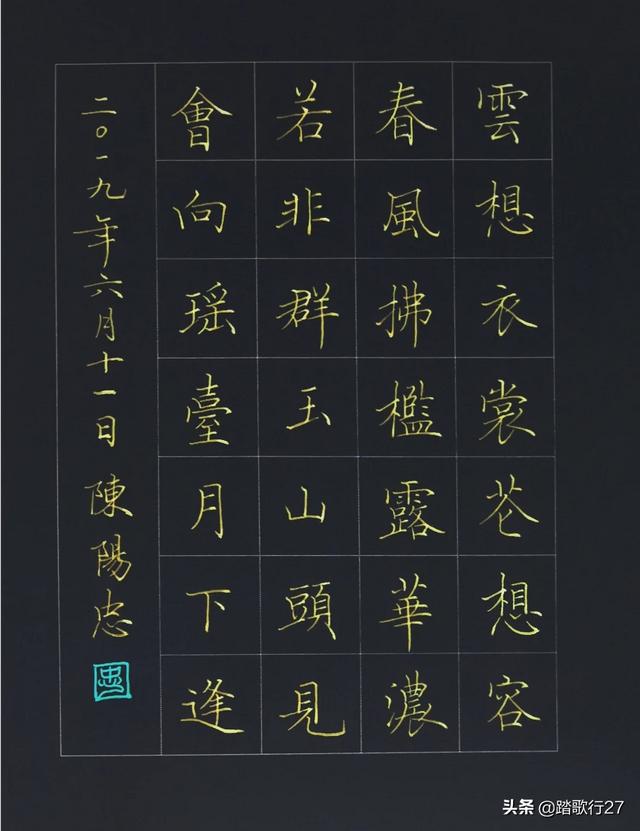 雲想衣裳花想容
春風拂檻露華濃
若非群玉山頭見
會向瑶臺月下逢
二○一九年六月十一日陳陽忠
忠
头条@踏歌行27